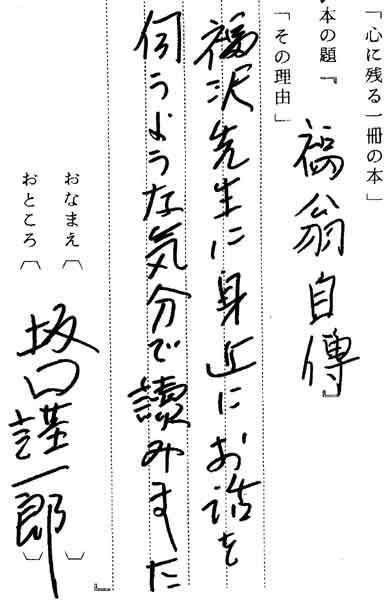 「心に残る一冊の本」
本の題『福翁自傳』
「その理由」
福沢先生に身近にお話を
伺うような気分で讀みました
おなまえ〔　　　〕
おところ〔坂口謹一郎〕
』